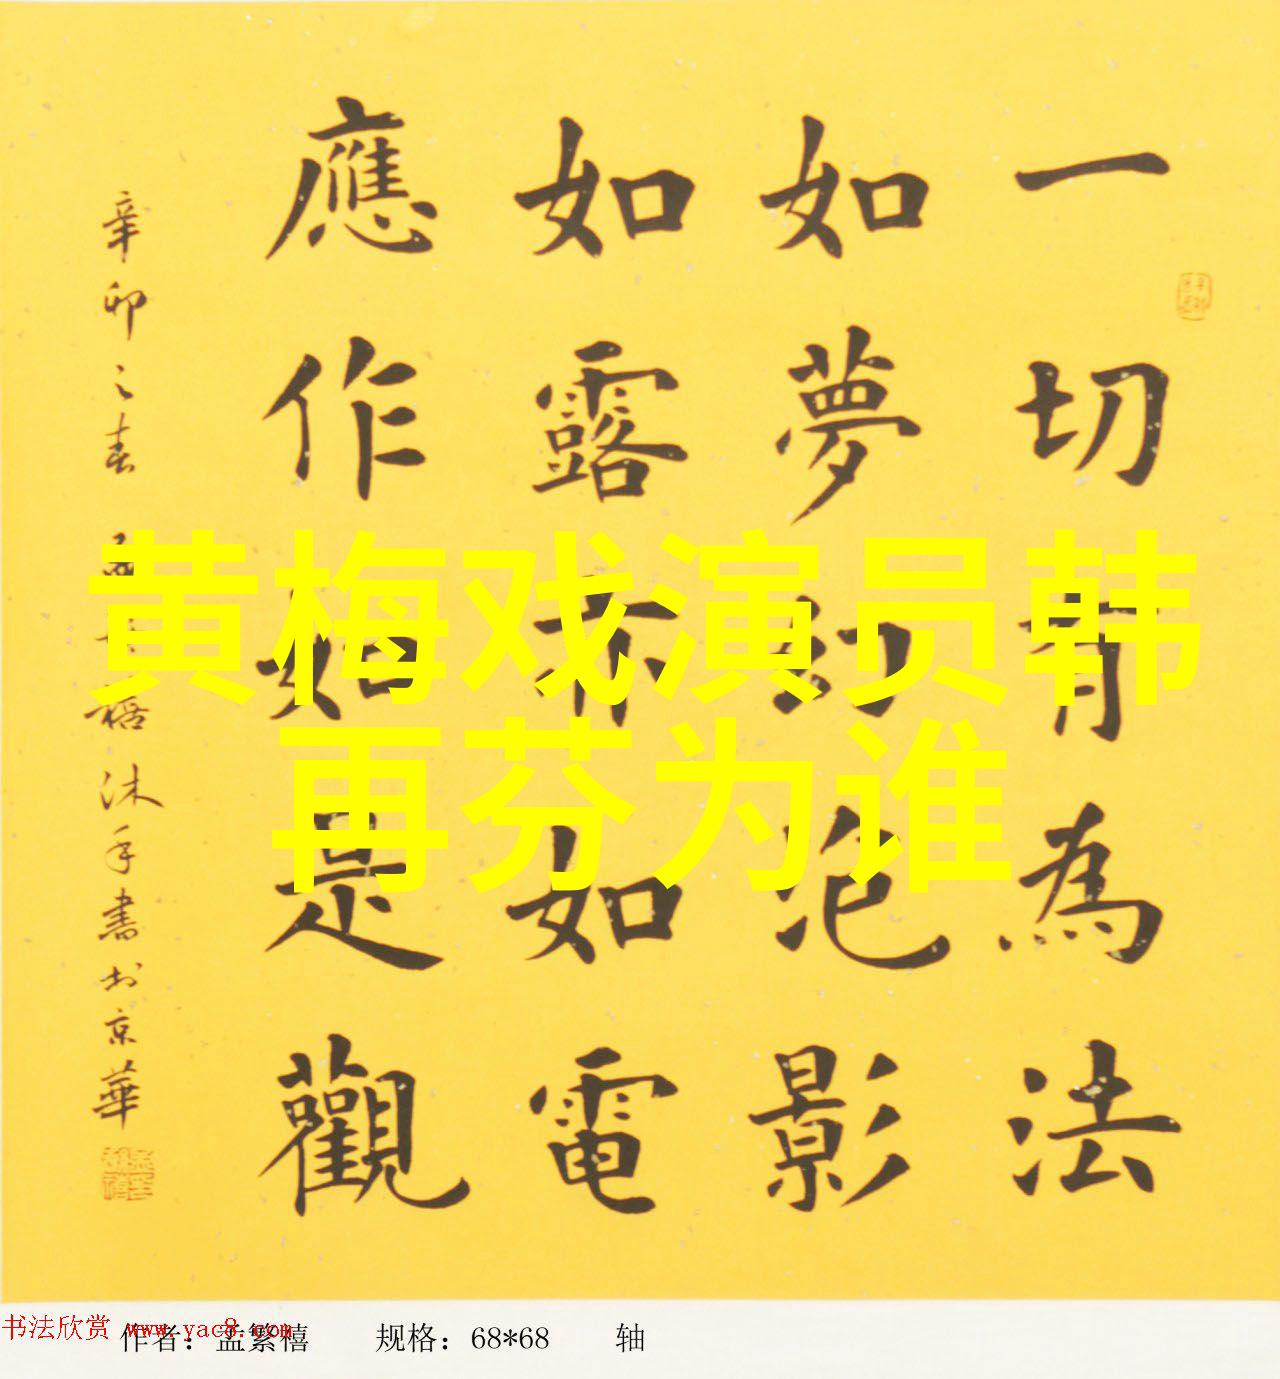 一切有為法
如夢幻泡影
如露亦如電
應作如是觀
辛卯之春
沐手書於京華
黄梅戏演员韩
再芬为谁
书法欣赏 www.yac8.com
作者：孟繁禧 规格：68*68 轴